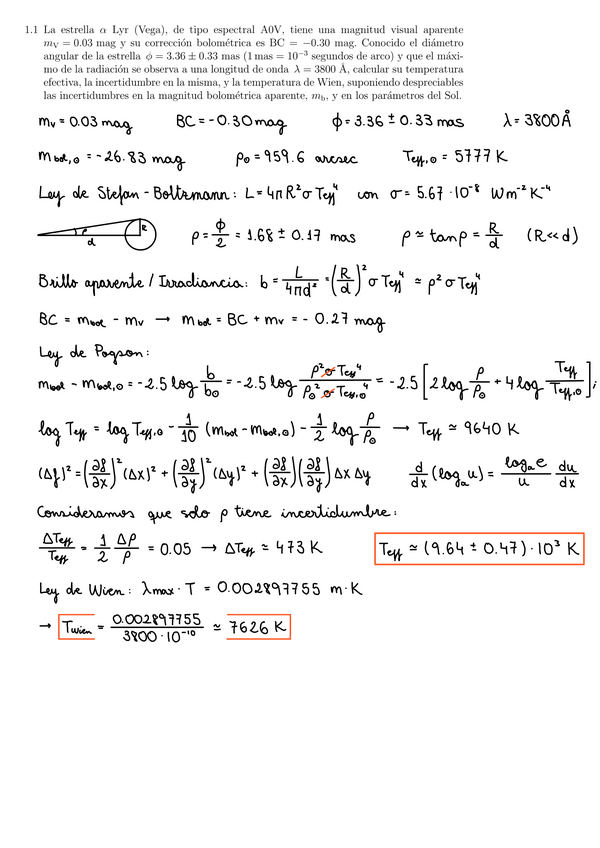 1.1 La estrella α Lyr (Vega), de tipo espectral A0V, tiene una magnitud visual aparente
m_V = 0.03 mag y su corrección bolométrica es BC = −0.30 mag. Conocido el diámetro
angular de la estrella ϕ = 3.36 ± 0.33 mas (1 mas = 10⁻³ segundos de arco) y que el máxi-
mo de la radiación se observa a una longitud de onda λ = 3800 Å, calcular su temperatura
efectiva, la incertidumbre en la misma, y la temperatura de Wien, suponiendo despreciables
las incertidumbres en la magnitud bolométrica aparente, m_b, y en los parámetros del Sol.
m_v = 0.03 mag BC = -0.30 mag ϕ = 3.36 ± 0.33 mas λ = 3800 Å
m_bol,⊙ = -26.83 mag ρ_⊙ = 959.6 arcsec T_eff,⊙ = 5777 K
Ley de Stefan-Boltzmann: L = 4π R² σ T_eff⁴ con σ = 5.67 · 10⁻⁸ W m⁻² K⁻⁴
ρ R d ρ = ϕ/2 = 1.68 ± 0.17 mas ρ ≃ tan ρ = R/d (R << d)
Brillo aparente / Irradiancia: b = L/(4πd²) = (R/d)² σ T_eff⁴ ≃ ρ² σ T_eff⁴
BC = m_bol - m_v → m_bol = BC + m_v = - 0.27 mag
Ley de Pogson:
m_bol - m_bol,⊙ = -2.5 log b/b_⊙ = -2.5 log (ρ² σ T_eff⁴)/(ρ_⊙² σ T_eff,⊙⁴) = -2.5 [2 log ρ/ρ_⊙ + 4 log T_eff/T_eff,⊙];
log T_eff = log T_eff,⊙ - 1/10 (m_bol - m_bol,⊙) - 1/2 log ρ/ρ_⊙ → T_eff ≃ 9640 K
(Δf)² = (∂f/∂x)² (Δx)² + (∂f/∂y)² (Δy)² + (∂f/∂x)(∂f/∂y) Δx Δy d/dx (log_a u) = log_a e/u du/dx
Consideramos que solo ρ tiene incertidumbre:
ΔT_eff/T_eff = 1/2 Δρ/ρ = 0.05 → ΔT_eff ≃ 473 K T_eff ≃ (9.64 ± 0.47) · 10³ K
Ley de Wien: λ_max · T = 0.002897755 m · K
→ T_wien = 0.002897755/(3800 · 10⁻¹⁰) ≃ 7626 K